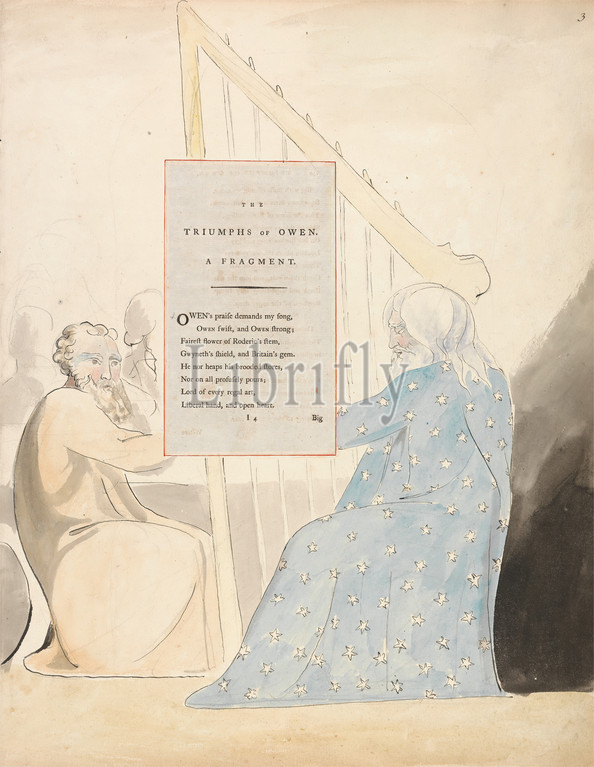 3
THE
TRIUMPHS OF OWEN.
A FRAGMENT.
OWEN's praiſe demands my ſong,
OWEN ſwift, and OWEN ſtrong;
Faireſt flower of Roderic's ſtem,
Gwyneth's ſhield, and Britain's gem.
He nor heaps his brooded ſtores,
Nor on all profuſely pours;
Lord of every regal art,
Liberal hand, and open heart.
I 4 Big
Librifly